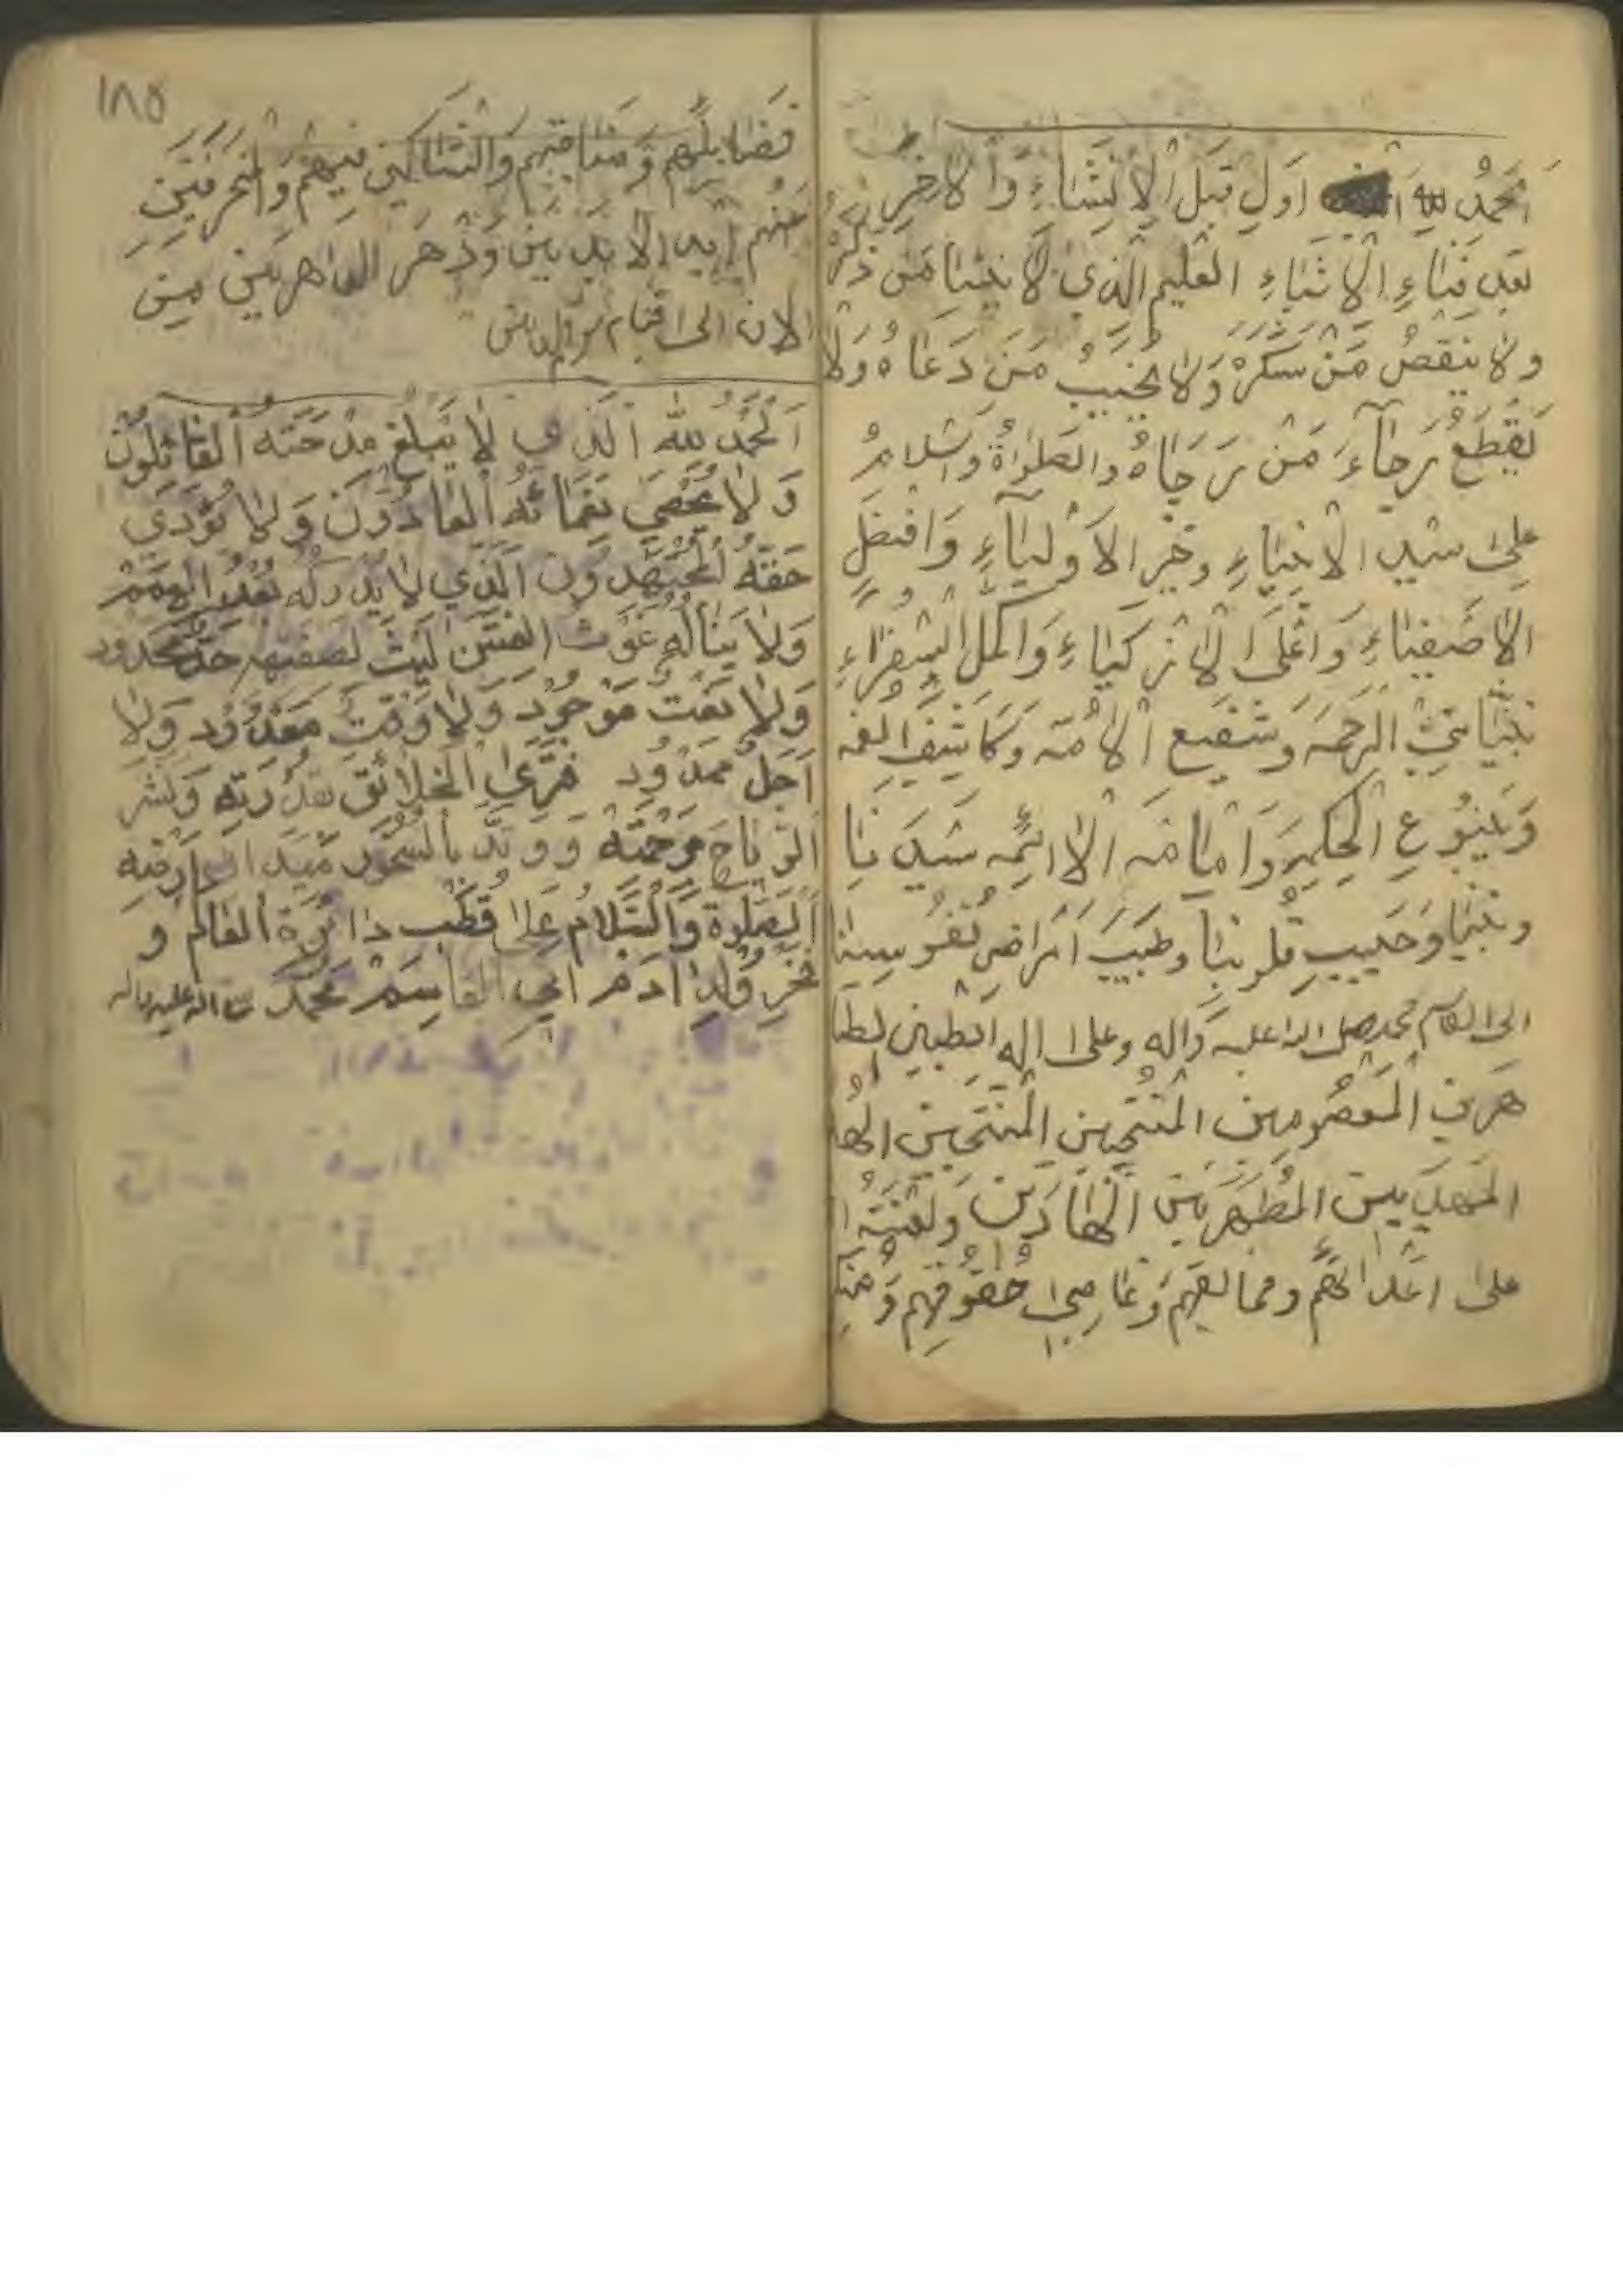 اَلحَمدُ لِلّهِ اَوَلِ قَبلَ الاِنشاءِ وَالاخِرِ
بَعدِ فَناءِ الاشیاءِ العَلیمِ الَّذی لا ینسا مَن ذَکَرَهُ
وَلا یَنقُصُ مَن شَکَرَهُ وَلا یُخَیِّبُ مَن دَعاهُ وَلا
یَقطَعُ رَجاءَ مَن رَجاهُ والصَلواةُ وَالسَلامُ
علی سید الانبیاءِ وخَیرِ الاَولیاءِ وَافضَلِ
الاصَفیاءِ وَاعلَی الازکیاءِ وَاکمَلِ السُفَراءِ
نَبیّنا نبی الرَحمَه وَشَفیع الاُمَه وَکاشِفِ الغمه
وَیَنبُوعِ الحِکمِ وَامامَه الائمه سَیدَنا
ونَبینا وَحَبیبِ قلوبنا وطَبیبَ اَمراضِ نُفوسِنا
ابی القاسم محمد صلی الله علیه وَاله وعلی اله الطیبین الطا
هَرینَ المَعصُومینَ المُنتَجبین المُنتَجبین الها
المَهدیینَ المُطَهَرینَ الهادین وَلَعنَةُ
علی اعدائهم ومخالفیهم وَغاصِبی حُقُوقِهِم وَمُنکِ
۱۸۵
فَضایِلِهِم وَمناقِبِهم وَالشاکینَ فیهِم وَالمُنحَرِفینَ
عَنهُم اَبَدِ الابِدینَ وَدَهرَ الداهرین مِنَ
الان الی قیام یوم الدین
اَلحَمدُ لِلّهِ اَلَّذی لا یَبلُغُ مِدحَتَهُ اَلقائِلُونَ
وَلا یُحصی نَعمائَهُ العادُّونَ وَلا یُؤَدی
حَقَّهُ المُجتَهِدُونَ اَلَّذی لا یُدرِکُهُ بُعدُ الهِمَم
وَلا یَنالُهُ غَوصُ الفِتَن لَیسَ لِصِفَتِهِ حَدٌّ مَحدود
وَلا نَعتٌ مَوجُودٌ وَلا وَقتٌ مَعدُودٌ وَلا
اَجَلٌ مَمدُودٌ فَطَرَ الخَلائِقَ بِقُدرَتِهِ وَنَشَرَ
الرِّیاحَ بِرَحمَتِهِ وَوَتَّدَ بِالصُّخُورِ مَیَدانَ اَرضِهِ
اَلصَلوةُ وَالسَّلامُ عَلی قُطبِ دائرَةِ العالَم وَ
فَخرِ وُلدِ ادَمَ ابی القاسِمِ مُحَمَد صلی الله علیه واله